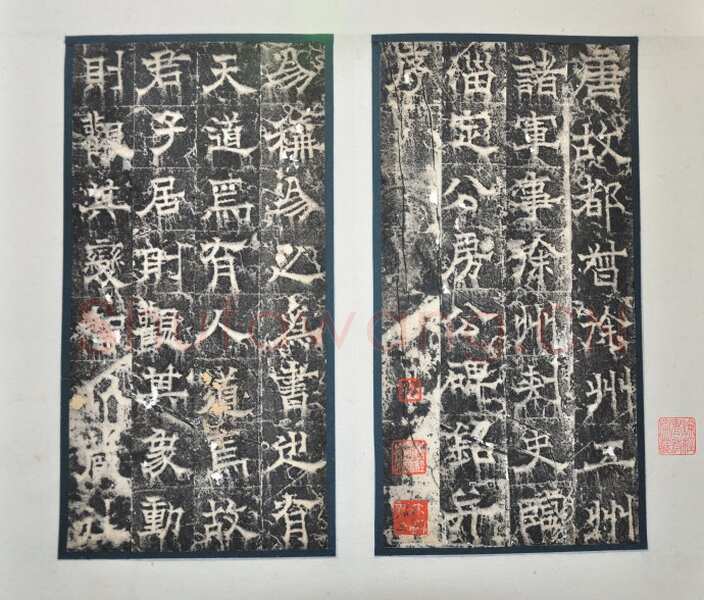 唐故都督徐州五州
諸軍事徐州刺史臨
淄定公房公碑銘并
序
易稱易之為書也有
天道焉有人道焉故
君子居則觀其象動
則觀其變
shufawang.cn